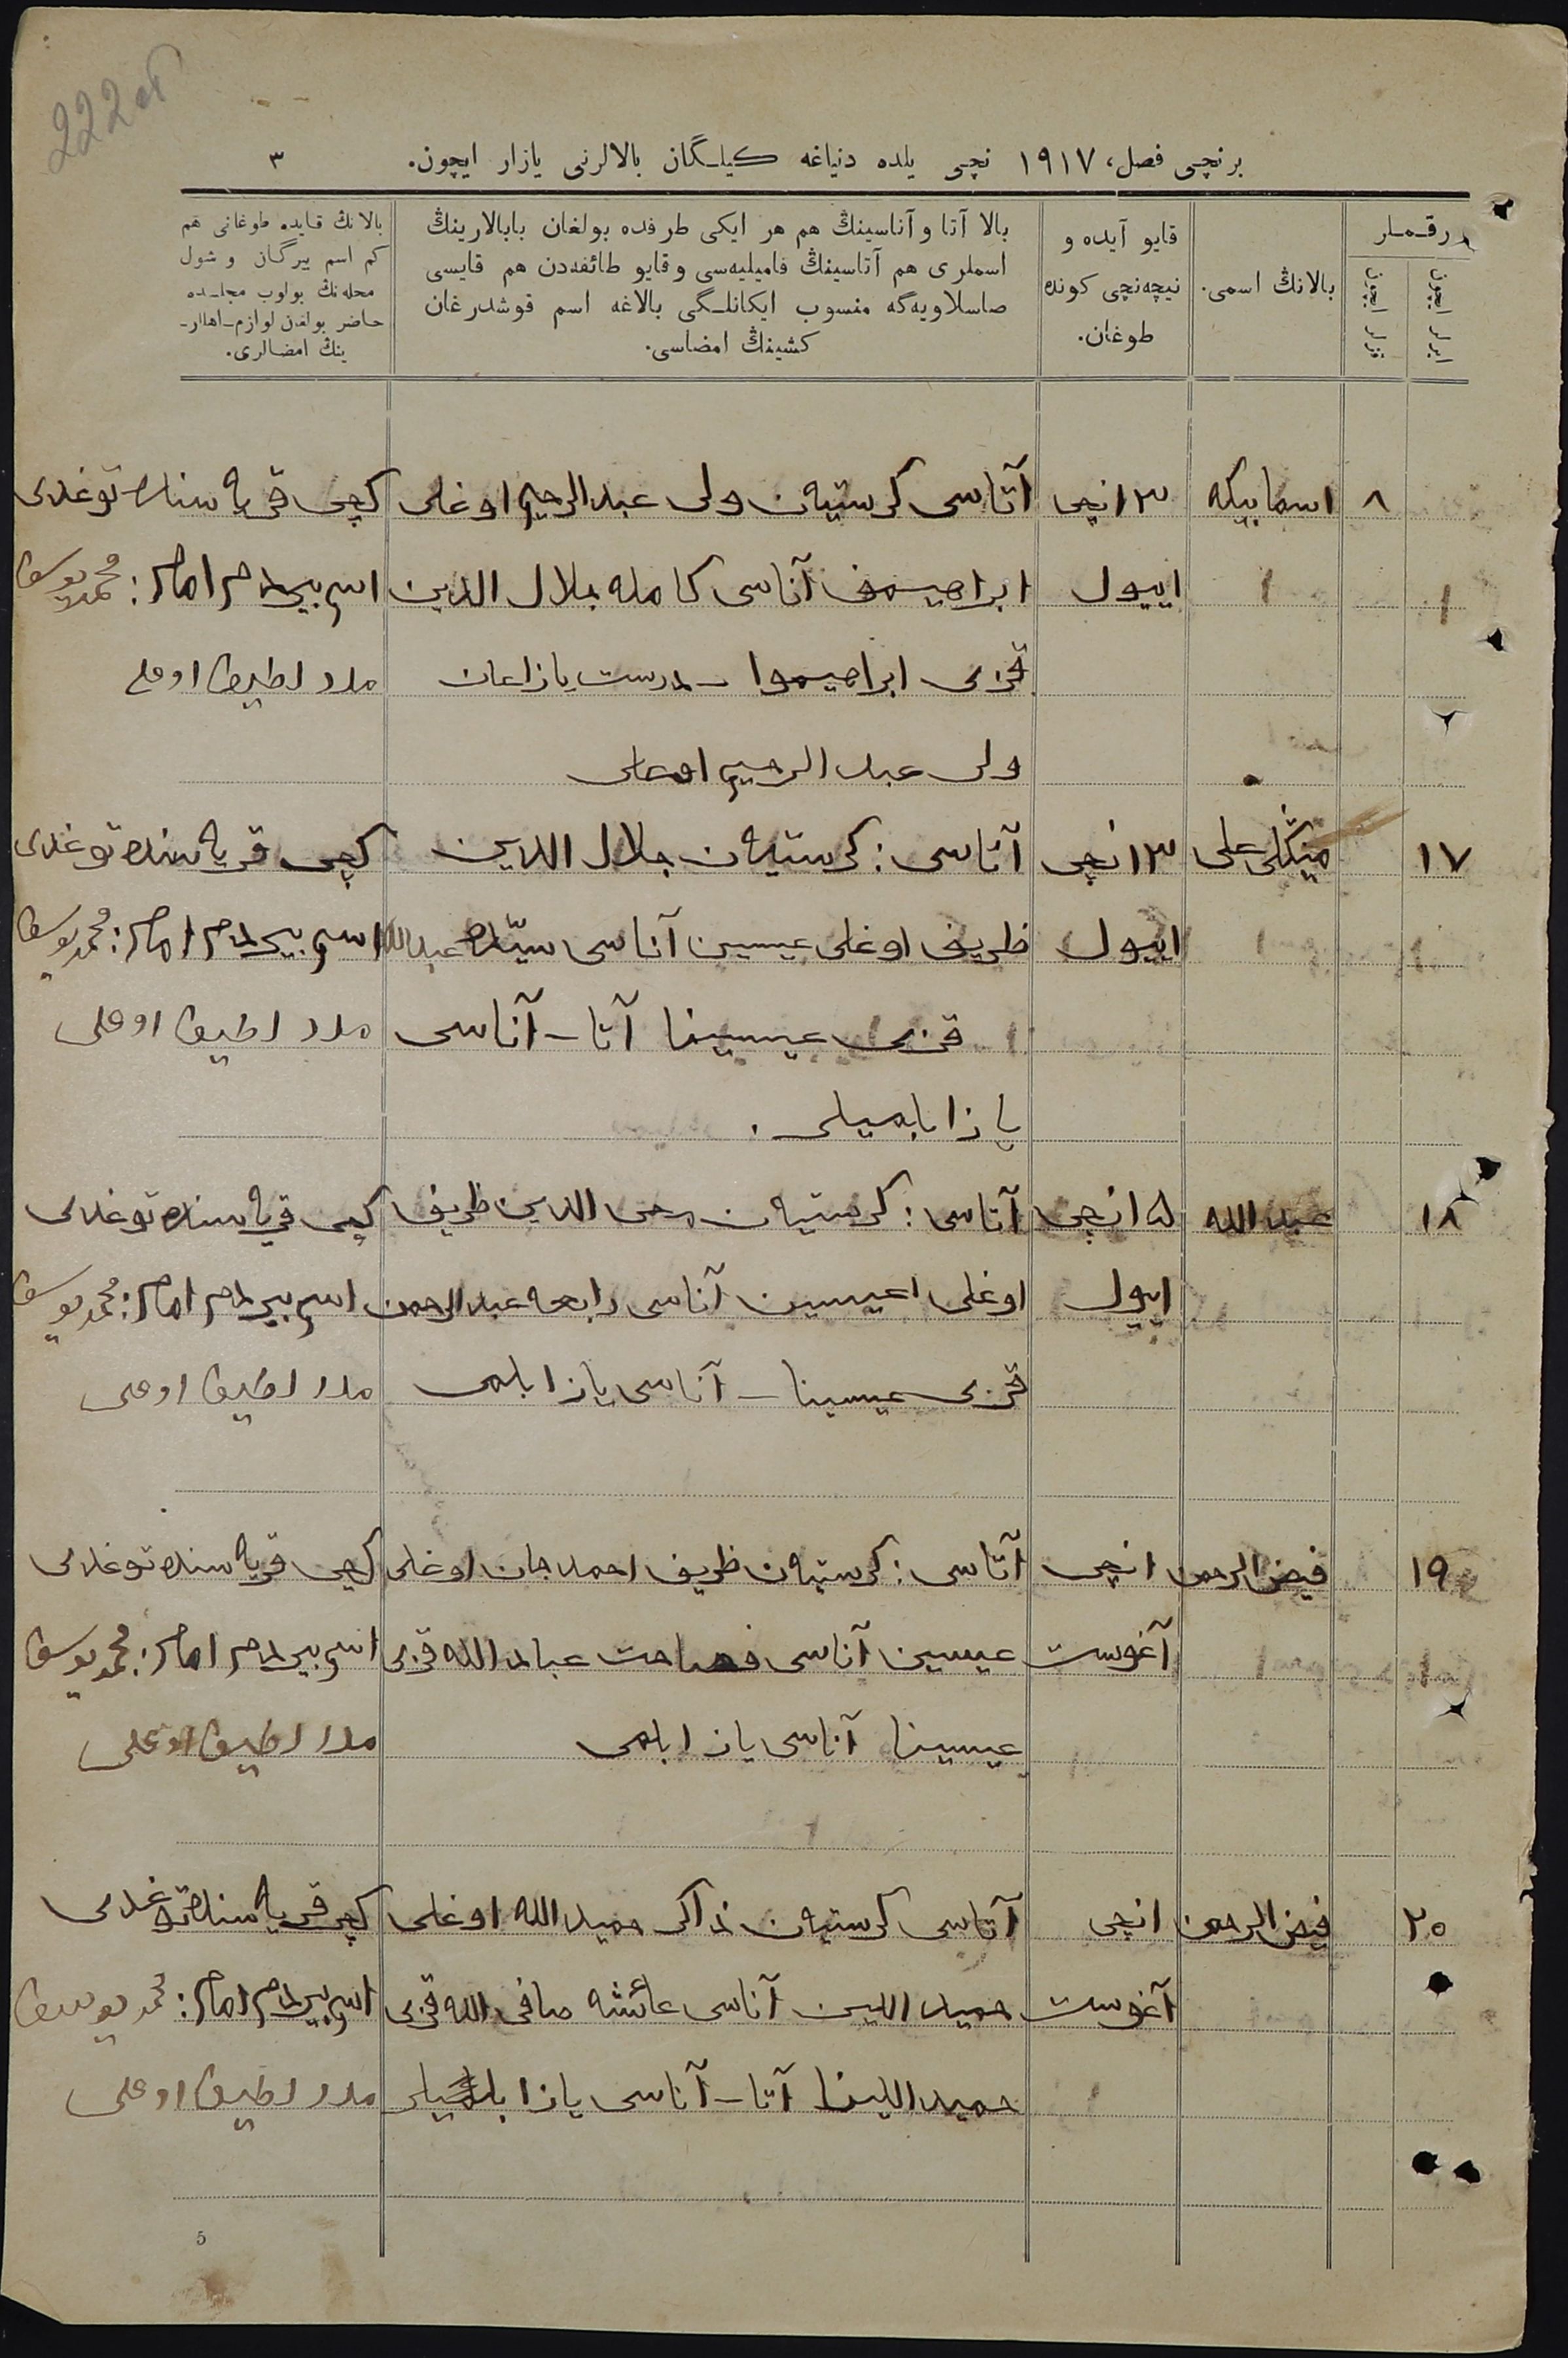 222об
برنچی فصل، ١٩١٧ نچی یلده دنیاغه کیلـگان بالالرنی یازار ایچون. ٣
رقـملر
ایرلر ایچون
قزلر ایچون
بالانڭ اسمی.
قایو آیده و
نیچه‌نچی کونده
طوغان.
بالا آتا و آناسینڭ هم هر ایکی طرفده بولغان بابالارینڭ
اسملری هم آتاسینڭ فامیلیه‌سی و قایو طائفه‌دن هم قایسی
صاسلاویه‌گه منسوب ایکانلـگی بالاغه اسم قوشدرغان
کشینڭ امضاسی.
بالانڭ قایده طوغانی هم
کم اسم بیرگان و شول
محله‌نڭ بولوب مجلـده
حاضر بولغان لوازم اهللر
ینڭ امضالری.
٨ اسمابیکه ١٣نچی آتاسی کرستیان ولی عبدالرحیم اوغلی کچی قریه سنده توغدی
١ ١ اییول ابراهیموف آناسی کامله جلال الدین اسم بیردم امام: محمدیوسف
قزی ابراهیموا – درست یازاعان ملا لطیف اوغلی
ولی عبدالرحیم اوغلی
١٧ مینڭلی علی ١٣نچی آتاسی: کرستیان جلال الدین کچی قریه سنده توغدی
اییول ظریف اوغلی عیسین آناسی سیّده عبدالله اسم بیردم امام: محمدیوسف
قزی عیسینا آتا – آناسی ملا لطیف اوغلی
یازا بلمیلی.
١٨ عبدالله ١٥نچی آتاسی: کرستیان محی الدین ظریف کچی قریه سنده توغدی
اییول اوغلی عیسین آناسی رابعه عبدالرحمن اسم بیردم امام: محمدیوسف
قزی عیسینا – آناسی یازا بلمی ملا لطیف اوغلی
١٩ فیض الرحمن ١نچی آتاسی: کرستیان ظریف احمدجان اوغلی کچی قریه سنده توغدی
آغوست عیسین آناسی فصاحت عبادالله قزی اسم بیردم امام: محمدیوسف
عیسینا آناسی یازا بلمی ملا لطیف اوغلی
٢٠ فیض الرحمن ١نچی آتاسی کرستیان ذاکر حمیدالله اوغلی کچی قریه سنده توغدی
آغوست حمیداللین آناسی عائشه صافی الله قزی اسم بیردم امام: محمد یوسف
حمیداللینا آتا – آناسی یازا بلمیلر ملا لطیف اوغلی
5